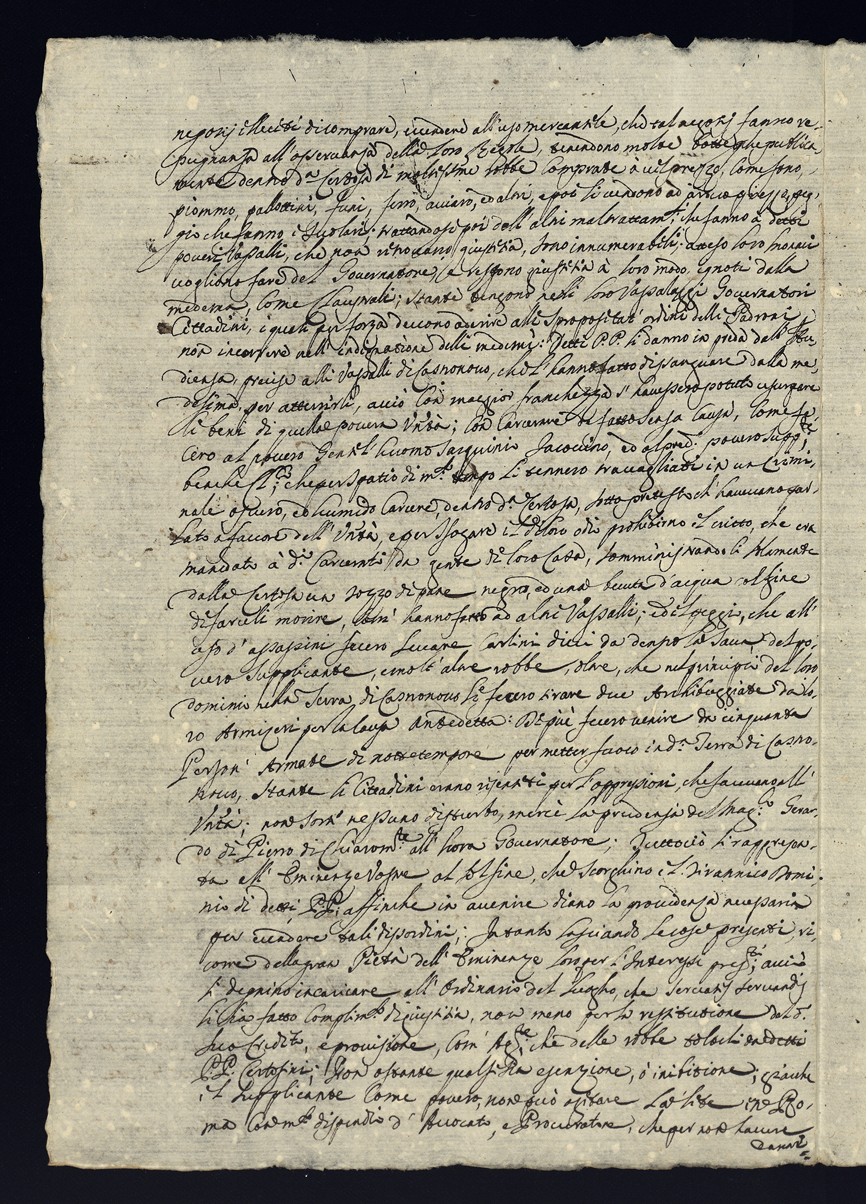 negotij illeciti di comprare, e vendere all'uso mercantile, che tal negotij fanno re-
pugnanza all'osservanza della loro Regola, tenendono molte botteghe publica-
mente dentro d.ª Certosa di moltissime robbe comprate à vil prezzo, come sono,
piommo, pallottini, funi, ferro, acciaro, ed altri, e poi li vendono ad
gio che fanno i Secolari: trattandosi poi dell'altri maltrattam.ti che fanno à detti
poveri Vassalli, che non ritrovano giustitia, sono innumerabili: atteso loro
vogliono fare del Governatore, e reggono giustitia à loro modo, ignoti dalla
medema, come Claustrali; stante tengono nelli loro Vassalaggi Governatori
Cittadini, i quali per forza devono aderire alli spropositati ordini delli Padroni,
non incorrere nell'indignatione delli medemi: Detti P.P. li danno in preda dell'Au-
dienza, precise alli Vassalli di Casnonovo, che l'hanno fatto dissanguare dalla me-
desima, per atterrirli, acciò con maggior franchezza s'havessero potuto usurpare
li beni di quella povera Unità; con Carcerare de fatto senza causa, come fe-
cero al povero Gentil'huomo Tarquinio Jacovino, ed al pred.º povero supp.te,
benche Cl.co, che per spatio di m.to tempo li tennero travagliati in un Crimi-
nale oscuro, ed humido Carcere dentro d.ª Certosa, sotto pretesto ch'havevano par-
lato a favore dell'Unità, e per sfogare il di loro odio prohibirno il vitto, che era
mandato à d.i Carcerati da gente di loro Casa, somministrandoli solamente
dalla Certosa un tozzo di pane negro, ed una bevuta d'acqua al fine
di farceli morire, com'hanno fatto ad altri Vassalli; ed che all'
uso d'assassini fecero levare Carlini dieci da dentro la sacca del po-
vero supplicante, e molt'altre robbe, oltre, che nel principio del loro
dominio nella Terra di Casnonovo li fecero tirare due Archibuggiate da lo-
ro Armigeri per la causa Antedetta: Di più fecero venire da cinquanta
Person' Armate di notte tempore per metter fuoco in d.ª Terra di Casno-
novo, stante li Cittadini erano risentiti per l'oppressioni, che facevano all'
Unità; non sortì nessuno disturbo, mercè la prudenza del Mag.co Gerar-
do di Pierro di Chiarom.te all'hora Governatore; Tuttociò si rappresen-
ta all'Eminenze Vostre al fine, che scorghino il Tirannico Domi-
nio di detti P.P. affinche in avenire diano la providenza necessaria
per evadere tali disordini; Intanto lasciando le cose presenti, ri-
corre dalla gran Pietà dell'Eminenze loro per l'Interessi pre.ti, acciò
si degnino incaricare all'Ordinario del Luogho, che servatis servandis
li sia fatto complim.to di giustitia, non meno per la restitutione del d.º
suo Credito, e provisione, com' che delle robbe tolteli da detti
P.P. Certosini; Non ostante qualsisia esenzione, ò inibitione; giache
il supplicante come povero, non può agitare la lite in Ro-
ma con m.to dispendio d'Avocato, e Procuratore, che per non havere
danari